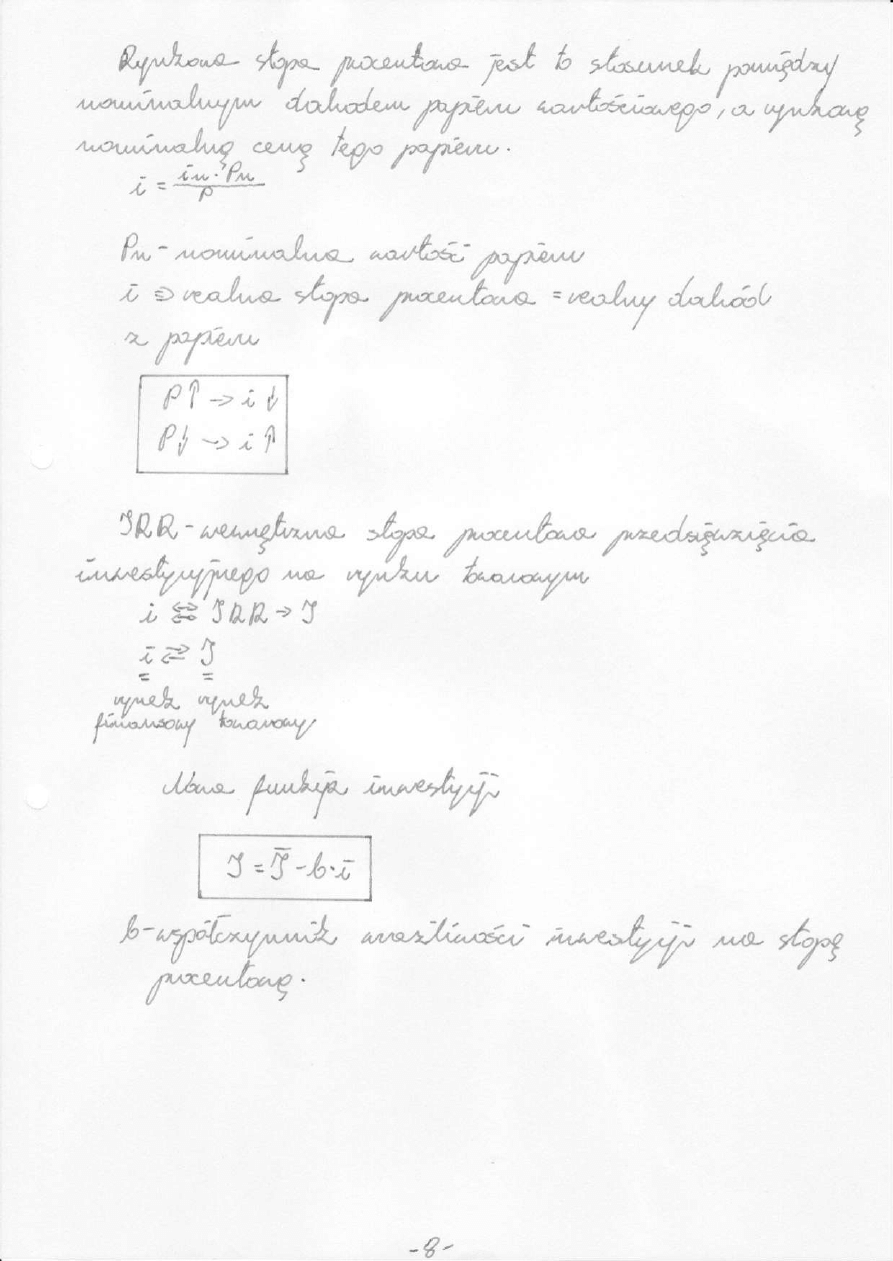 Rynkowa stopa procentowa jest to stosunek pomiędzy
nominalnym dochodem papieru wartościowego, a rynkową
nominalną ceną tego papieru.
i = in · Pn / P
Pn - nominalna wartość papieru
i ⇒ realna stopa procentowa = realny dochód
z papieru
P↑ → i↓
P↓ → i↑
IRR - wewnętrzna stopa procentowa przedsięwzięcia
inwestycyjnego na rynku towarowym
i ⇔ IRR → I
i ⇄ I
rynek rynek
finansowy towarowy
Nowa funkcja inwestycji
I = Ī - b · i
b - współczynnik wrażliwości inwestycji na stopę
procentową.
-8-